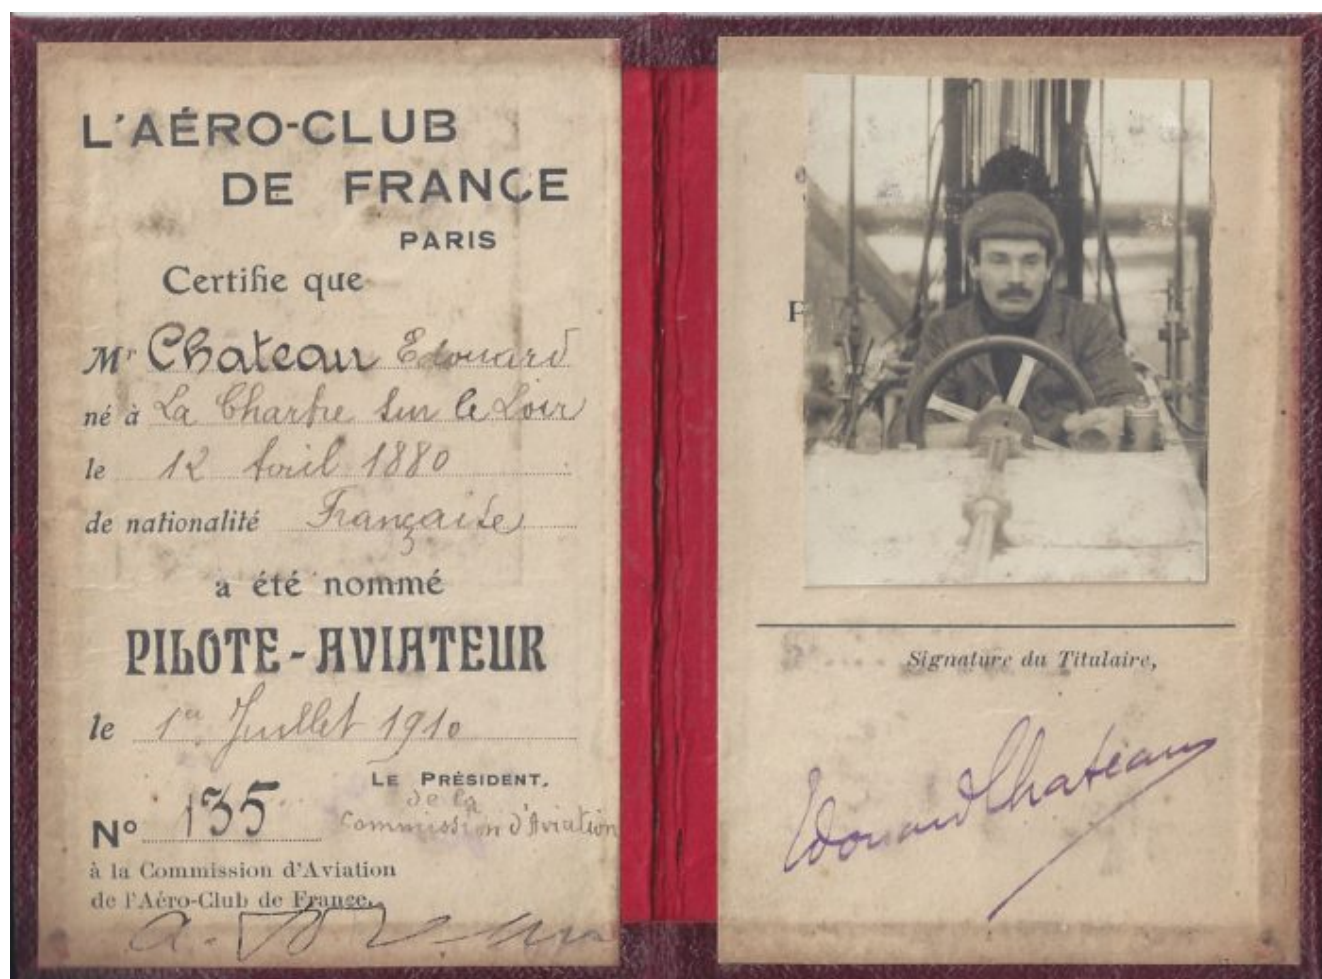 L'AÉRO-CLUB
DE FRANCE
PARIS
Certifie que
Mr Chateau Edouard
né à La Chartre sur le Loir
le 12 Avril 1880
de nationalité Française
a été nommé
PILOTE-AVIATEUR
le 1er Juillet 1910
LE PRÉSIDENT,
de la
Commission d'Aviation
No 135
à la Commission d'Aviation
de l'Aéro-Club de France.
P
Signature du Titulaire,
Edouard Chateau